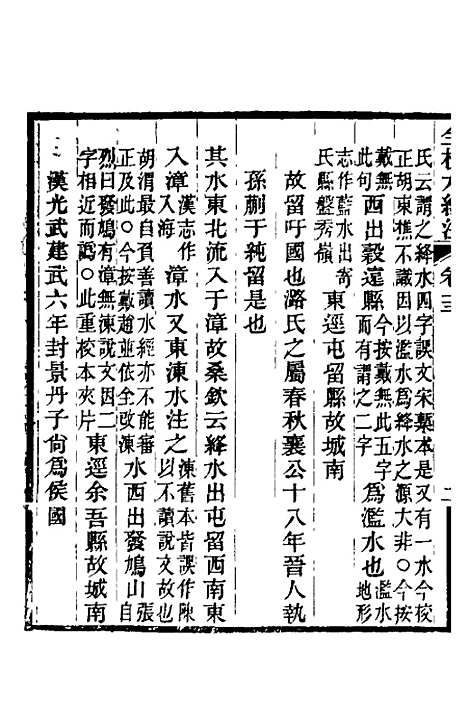 氏云謂之絳水四字誤文宋槧本是又有一水今校
正胡東樵不識因以濫水為絳水之源大非○今按
戴無
此句
西出穀遠縣
今按戴無此五字
而有謂之二字
為濫水也
濫水
地形
志作藍水出寄
氏縣盤秀嶺
東逕屯留縣故城南
故留吁國也潞氏之屬春秋襄公十八年晉人執
孫蒯于純留是也
其水東北流入于漳故桑欽云絳水出屯留西南東
入漳
漢志作
入海
漳水又東涷水注之
涷舊本皆誤作陳
以不讀說文故也
胡渭最自負善讀水經亦不能審
正及此○今按戴趙並依全改涷
水西出發鳩山
張
自
烈曰發鳩有漳無涷說文因二
字相近而譌○此重校本夾片
東逕余吾縣故城南
漢光武建武六年封景丹子尙為侯國